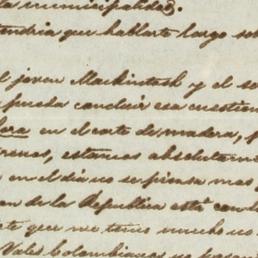 la municipalidad.
tendria que hablarte largo so
l joven Mackintosh y el se
pueda concluir esa cuestion
hora en el corte de madera, p
renos, estamos absolutam
en el dia no se piensa mas
en de la Republica está con
te que me tiene mucho
Vales Colombianos no